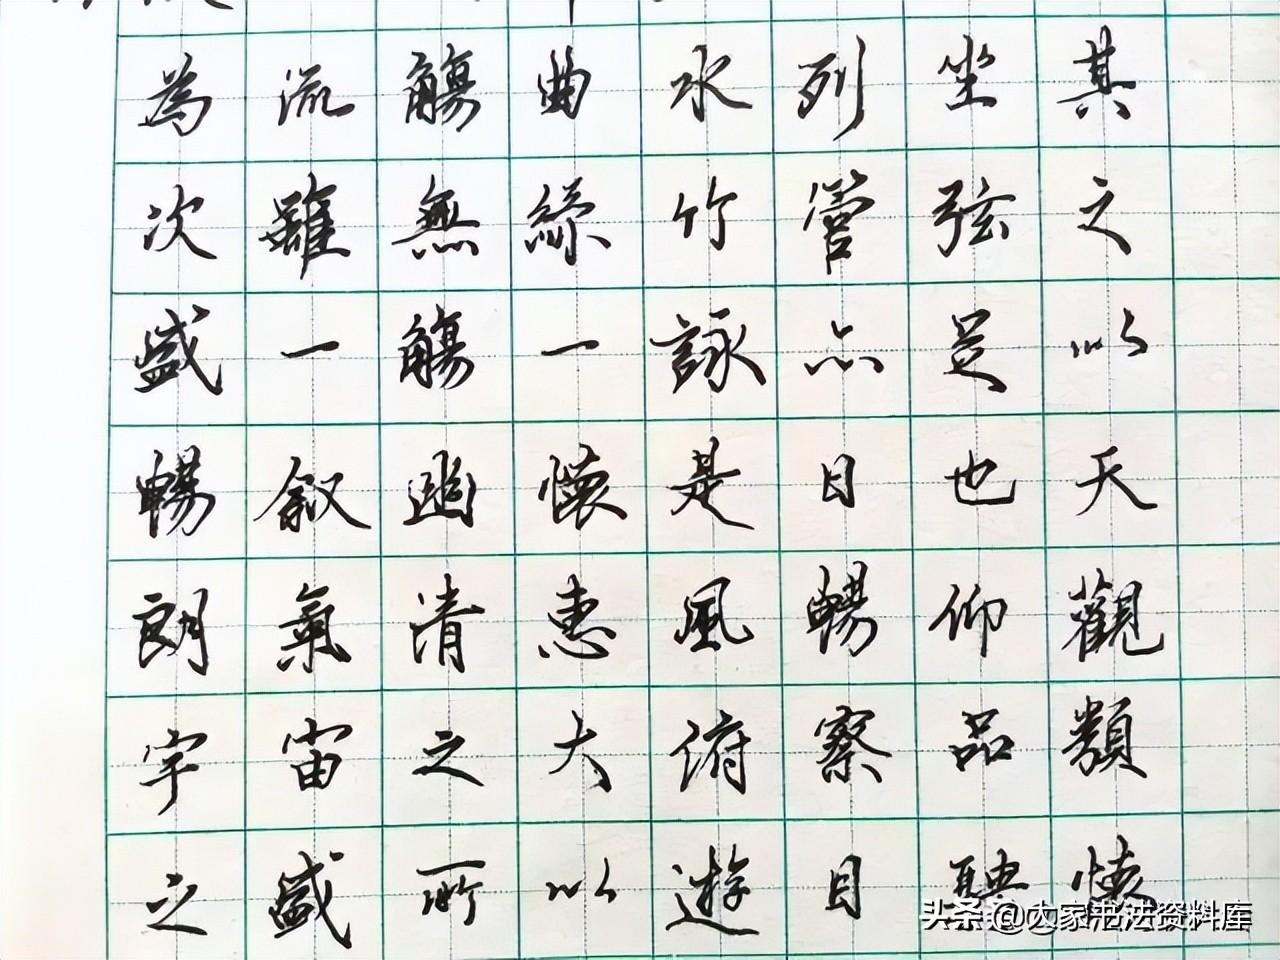 為流觴曲水列坐其
次雖無絲竹管弦之
盛一觴一詠亦足以
暢叙幽懷是日也天
朗氣清惠風暢仰觀
宇宙之大俯察品類
之盛所以遊目懷
头条 @大家书法资料库